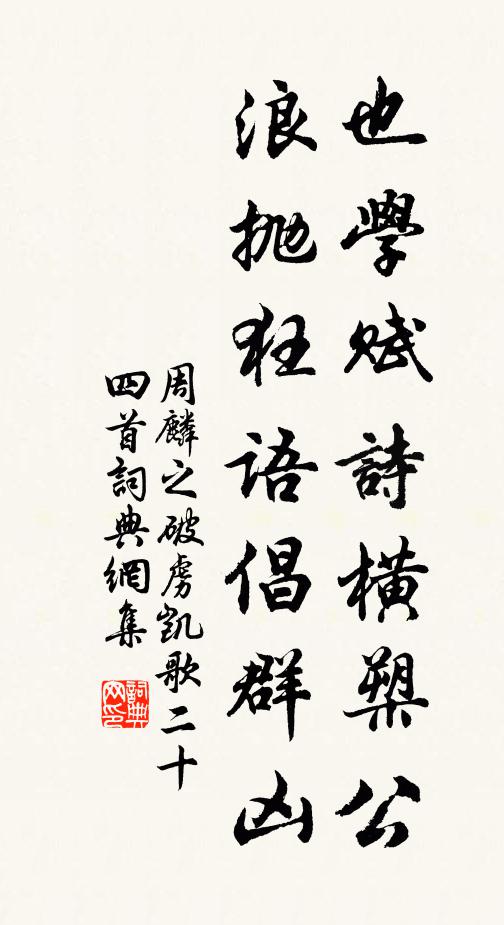 也學賦詩橫槊公
浪拋狂語倡群凶
周麟之破虜凱歌二十
四首詞典網集
詞典
网印